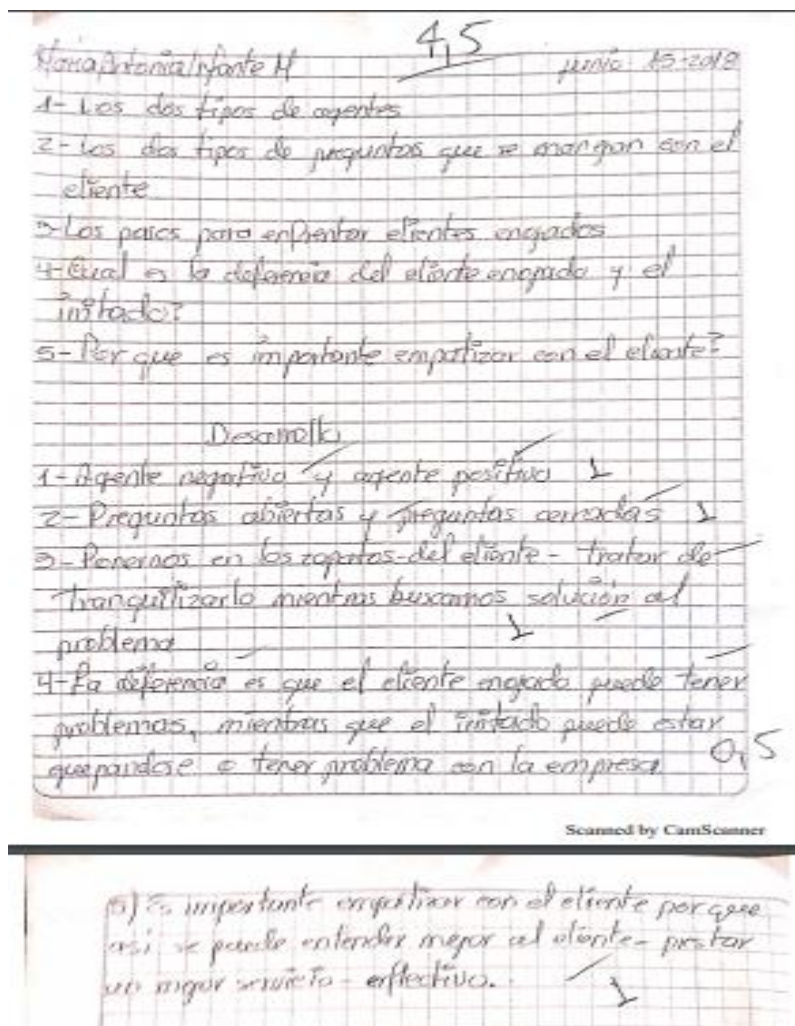 4,5
Maria Antonia Infante M junio 15-2018
1- Los dos tipos de agentes
2- Los dos tipos de preguntas que se manejan con el
cliente
3- Los pasos para enfrentar clientes enojados
4- Cual es la deferencia del cliente enojado y el
irritado?
5- Por que es importante empatizar con el cliente?
Desarrollo
1- Agente negativo y agente positivo 1
2- Preguntas abiertas y preguntas cerradas 1
3- Ponernos en los zapatos del cliente - tratar de
tranquilizarlo mientras buscamos solución al
problema 1
4- La deferencia es que el cliente enojado puede tener
problemas, mientras que el irritado puede estar
quejandose o tener problema con la empresa. 0,5
Scanned by CamScanner
5) Es importante empatizar con el cliente por que
asi se puede entender mejor al cliente - prestar
un mejor servicio - efectivo. 1